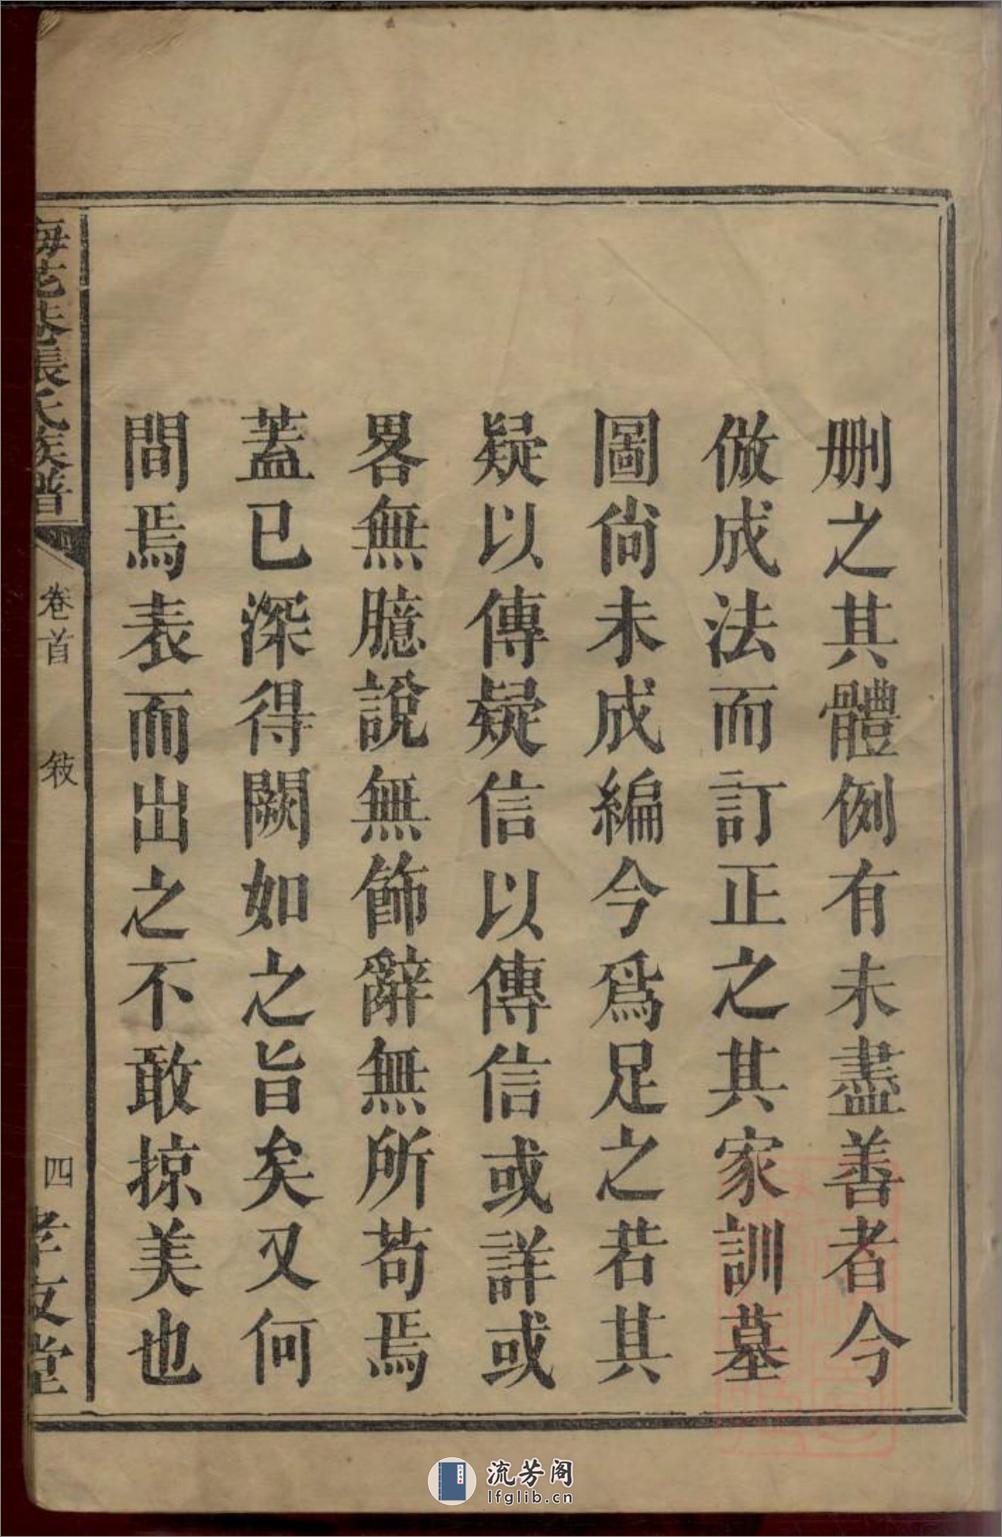 删之其體例有未盡善者今
倣成法而訂正之其家訓墓
圖尙未成編今爲足之若其
疑以傳疑信以傳信或詳或
畧無臆說無飾辭無所苟焉
蓋已深得闕如之旨矣又何
間焉表而出之不敢掠美也
海花巷張氏族譜
卷首
敍
四
孝友堂
流芳阁
lfglib.cn